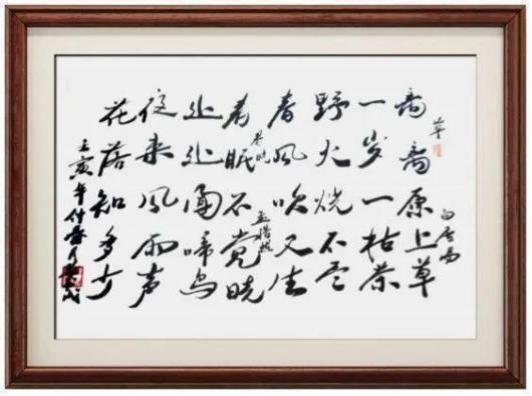 白居易
离离原上草
一岁一枯荣
野火烧不尽
春风吹又生
春晓
孟浩然
春眠不觉晓
处处闻啼鸟
夜来风雨声
花落知多少
壬寅年